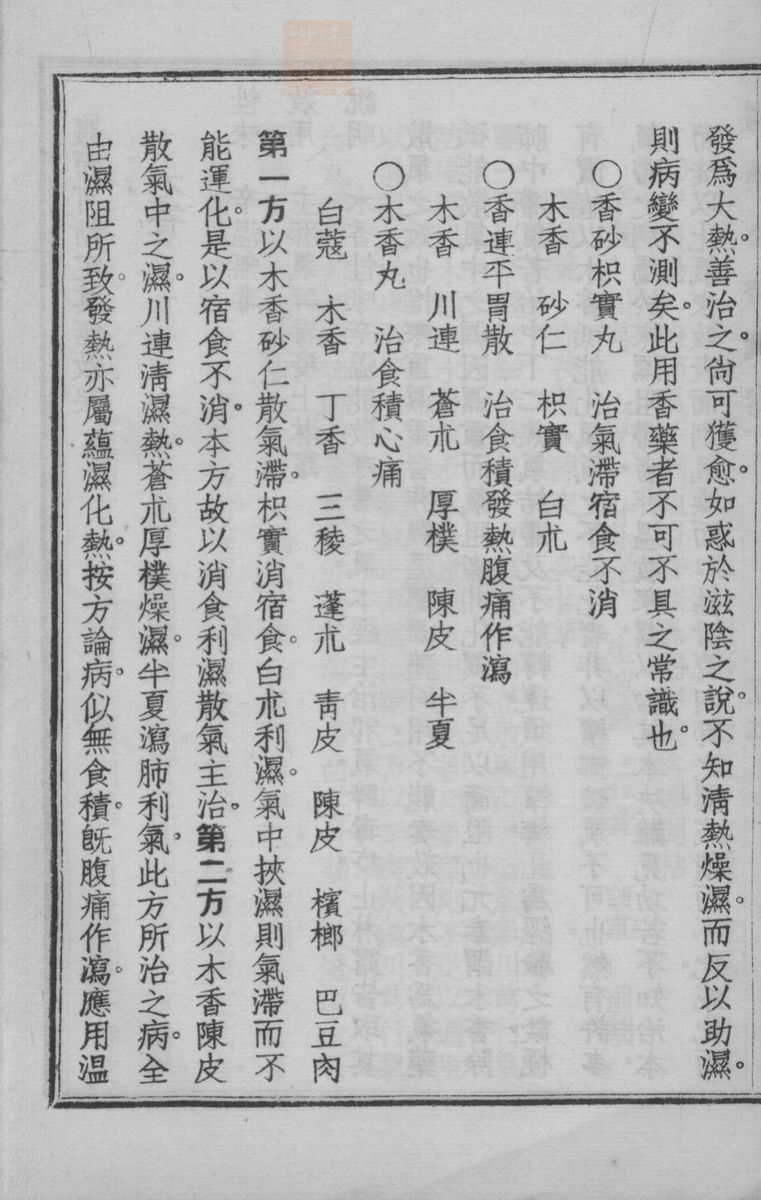 發爲大熱。善治之。尙可獲愈。如惑於滋陰之說。不知淸熱燥濕。而反以助濕。
則病變不測矣。此用香藥者不可不具之常識也。
○香砂枳實丸　治氣滯宿食不消
木香　砂仁　枳實　白朮
○香連平胃散　治食積發熱腹痛作瀉
木香　川連　蒼朮　厚樸　陳皮　半夏
○木香丸　治食積心痛
白蔻　木香　丁香　三稜　蓬朮　靑皮　陳皮　檳榔　巴豆肉
第一方以木香砂仁散氣滯。枳實消宿食。白朮利濕。氣中挾濕則氣滯而不
能運化。是以宿食不消。本方故以消食利濕散氣主治。第二方以木香陳皮
散氣中之濕。川連淸濕熱。蒼朮厚樸燥濕。半夏瀉肺利氣。此方所治之病。全
由濕阻所致。發熱亦屬蘊濕化熱。按方論病。似無食積。旣腹痛作瀉。應用温